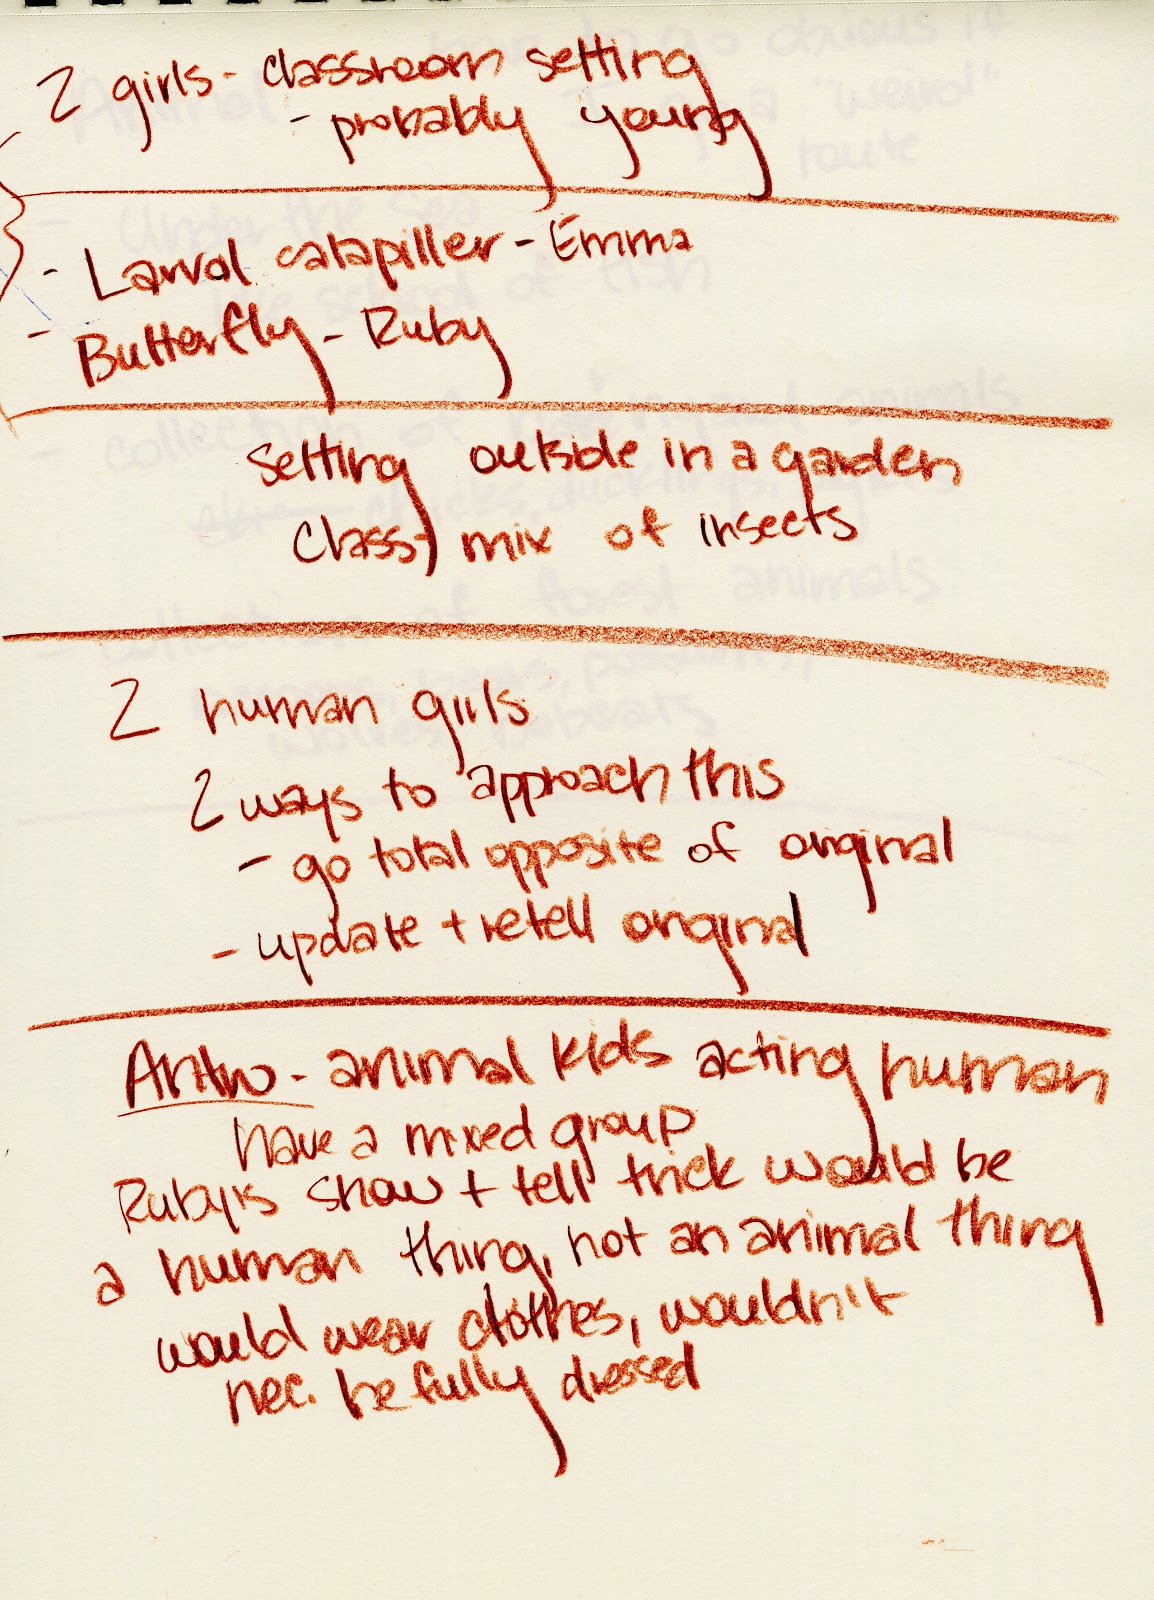 2 girls - classroom setting
- probably young
- Larval catapiller - Emma
- Butterfly - Ruby
setting outside in a garden
class) mix of insects
2 human girls
2 ways to approach this
- go total opposite of original
- update + retell original
Antro - animal kids acting human
have a mixed group
Ruby's show + tell trick would be
a human thing, not an animal thing
would wear clothes, wouldn't
nec. be fully dressed